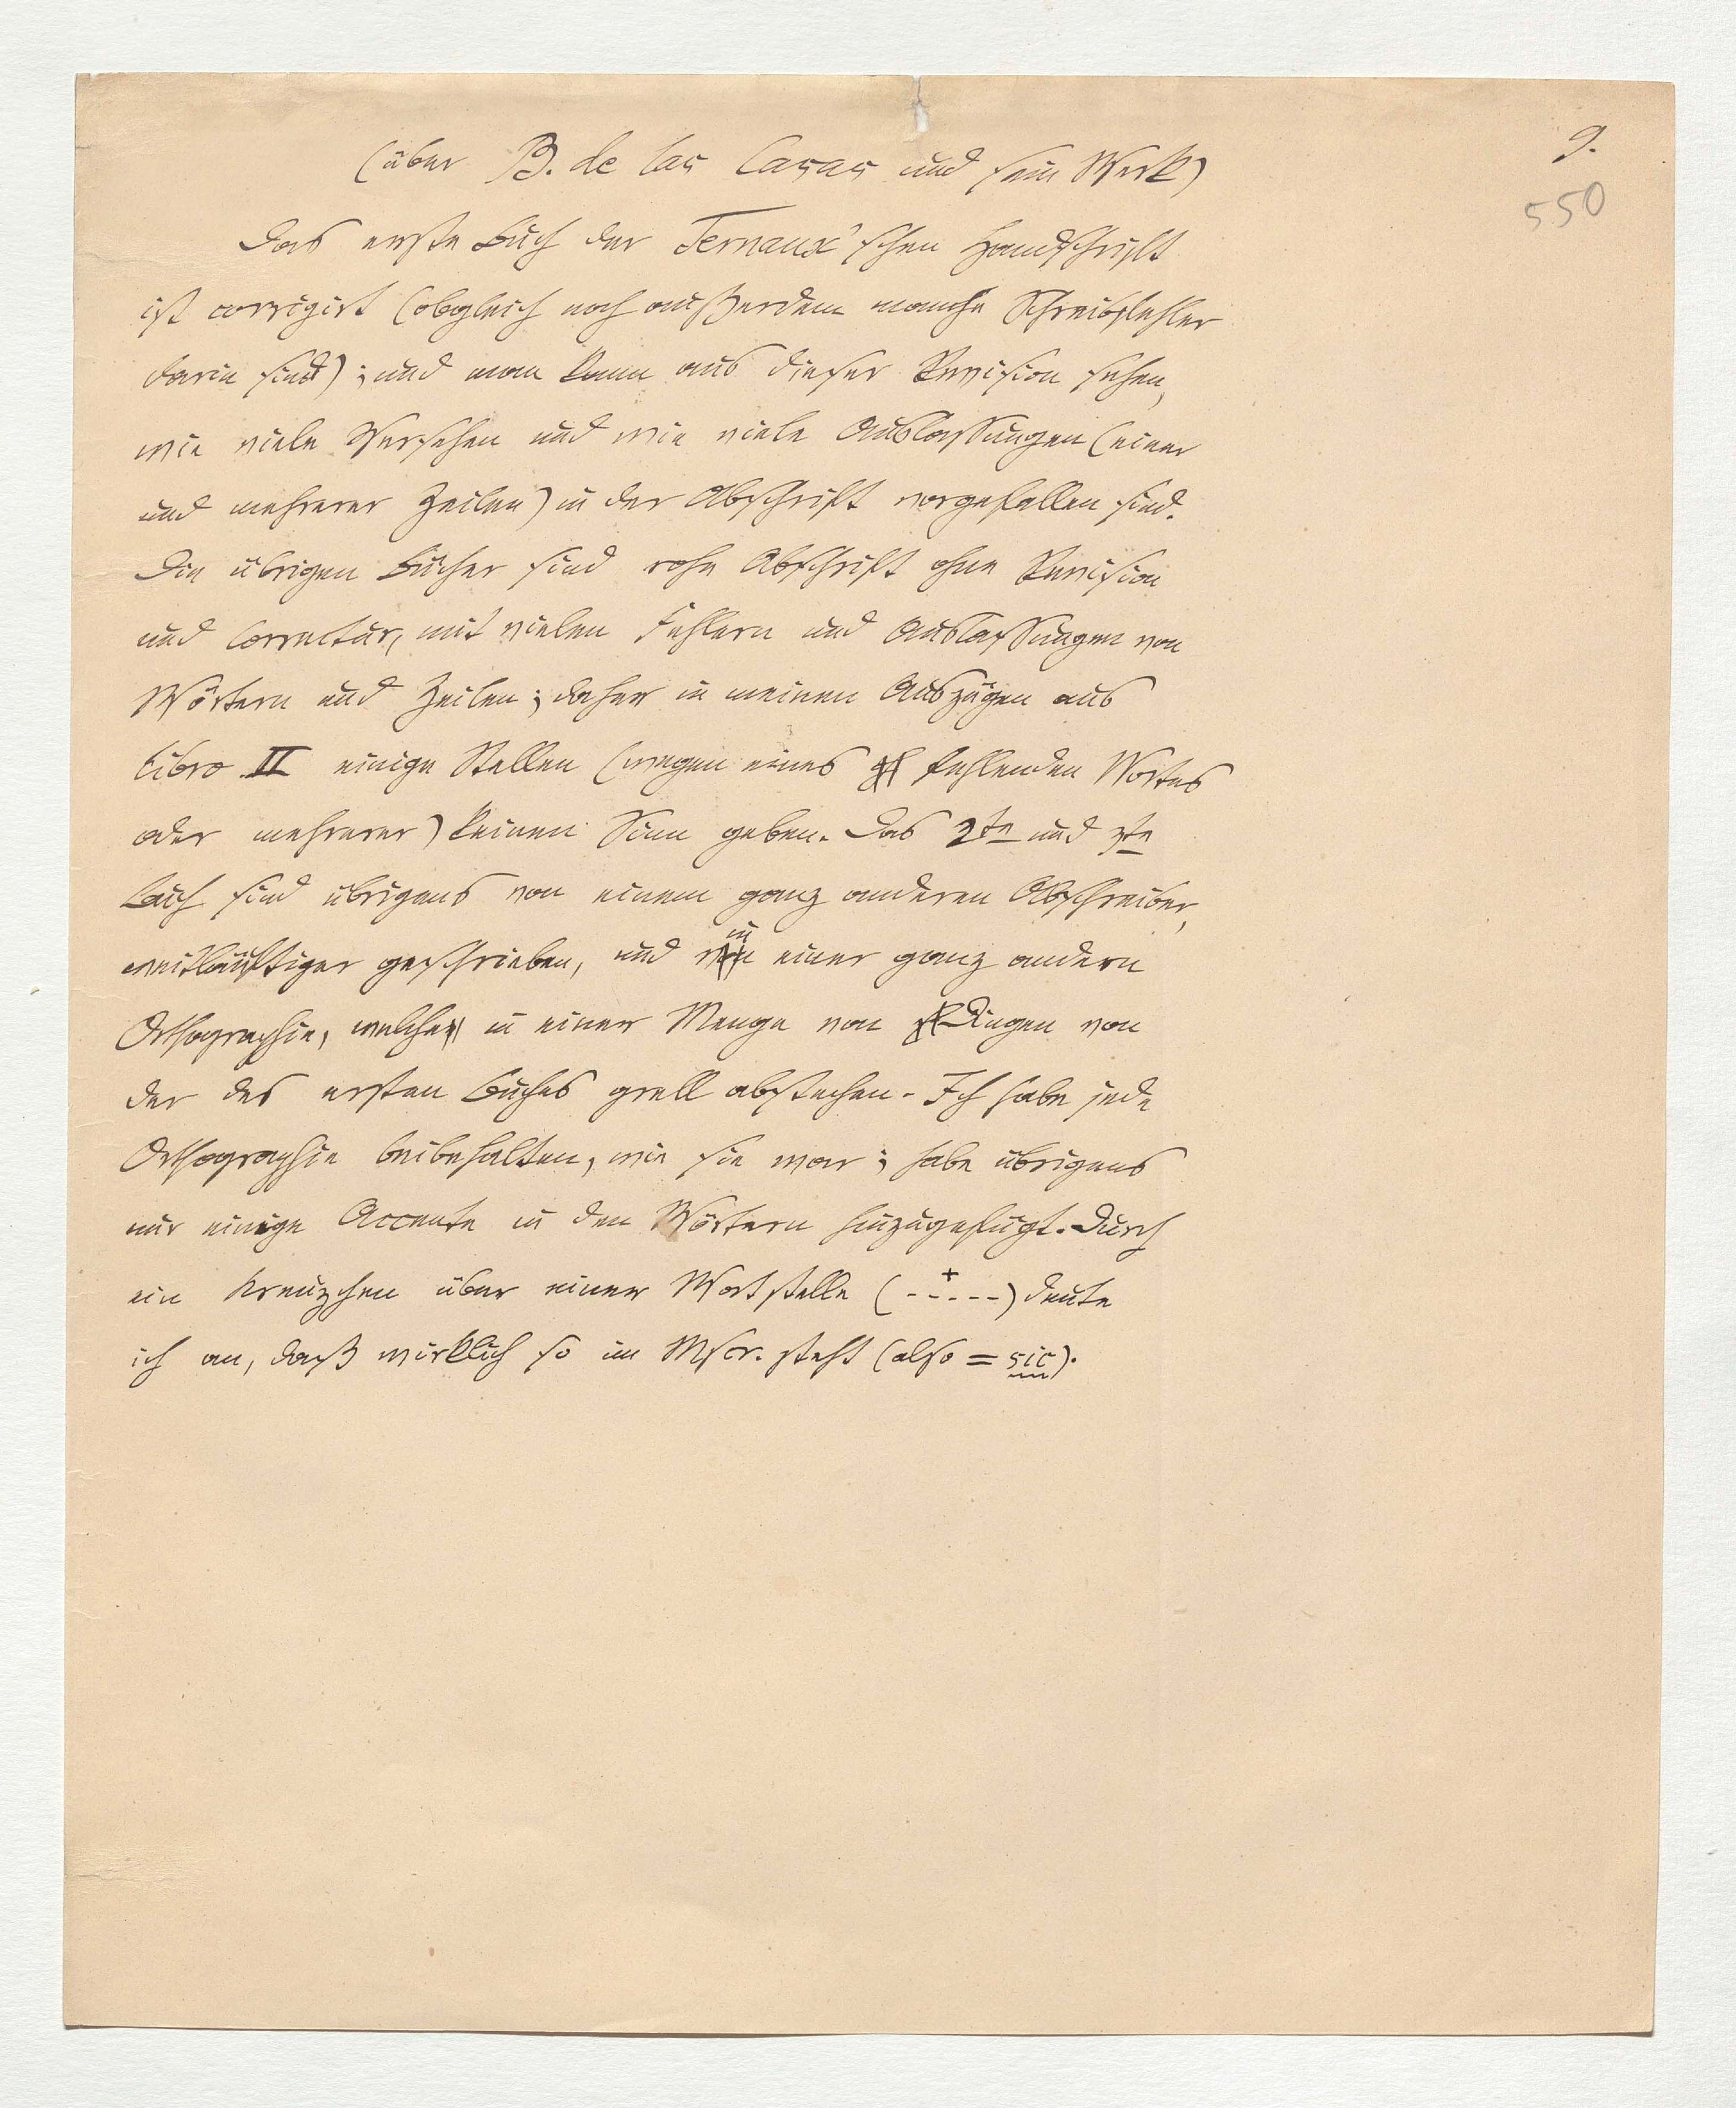 9.
550
(über B. de las Casas und sein Werk)
Das erste Buch der Ternaux'schen Handschrift
ist corrigirt (obgleich noch außerdem manche Schreibfehler
darin sind); und man kann aus dieser Revision sehen,
wie viele Versehen und wie viele Auslassungen (einer
und mehrerer Zeilen) in der Abschrift vorgefallen sind.
Die übrigen Bücher sind rohe Abschrift ohne Revision
und Correctur, mit vielen Fehlern und Auslassungen von
Wörtern und Zeilen; daher in meinen Auszügen aus
libro II einige Stellen (wegen eines fehlenden Wortes
oder mehrerer) keinen Sinn geben. Das 2te und 3te
Buch sind übrigens von einem ganz anderen Abschreiber,
weitläuftiger geschrieben, und in einer ganz andern
Orthographie, welche in einer Menge von Dingen von
der des ersten Buches grell abstechen. Ich habe jede
Orthographie beibehalten, wie sie war; habe übrigens
nur einige Accente in den Wörtern hinzugefügt. Durch
ein Kreuzchen über einer Wortstelle (--+---) deute
ich an, daß wirklich so im Mscr. steht (also = sic).